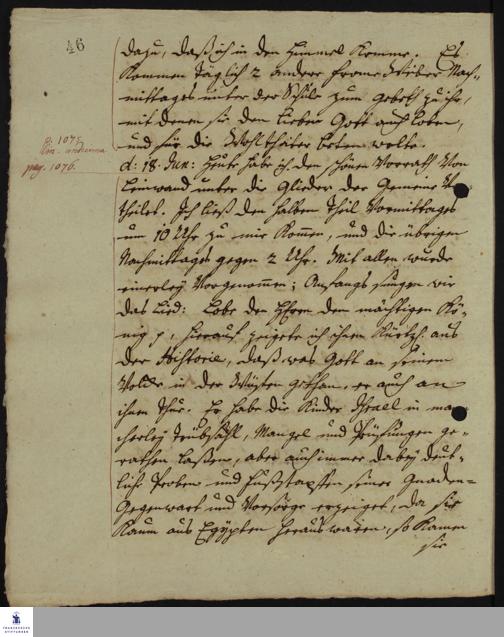 46
dazu, daß ich in den Himmel komme. Es
kommen täglich 2 andere frome Weiber Nach-
mittages unter der Schule zum Gebeth zu ihr,
mit denen sie den lieben Gott auch loben,
und für die Wohlthäter beten wolte.
p. 1075
lin. antepenu
pag. 1076.
d: 18. Jun: Heute habe ich den schönen Vorrath von
Leinwand unter die Glieder der Gemeine
theilet. Ich ließ den halben Theil Vormittages
um 10 Uhr zu mir kommen, und die übrigen
Nachmittages gegen 2 Uhr. Mit allen wurde
einerley vorgenommen; Anfangs sungen wir
das Lied: Lobe den HErren den mächtigen Kö-
nig p, hierauf zeigete ich ihnen kürtzl. aus
der Historie, daß, was Gott an seinem
Volcke in der Wüsten gethan, er auch an
ihnen thue. Er habe die Kinder Israel in man
cherley Trübsahl, Mangel und Prüfungen ge-
rathen laßen, aber auch immer dabey deut-
liche Proben und Fußstapffen seiner Gnaden-
Gegenwart und Vorsorge erzeiget, da sie
kaum aus Egypten heraus waren, so kamen
sie
FRANCKESCHE
STIFTUNGEN